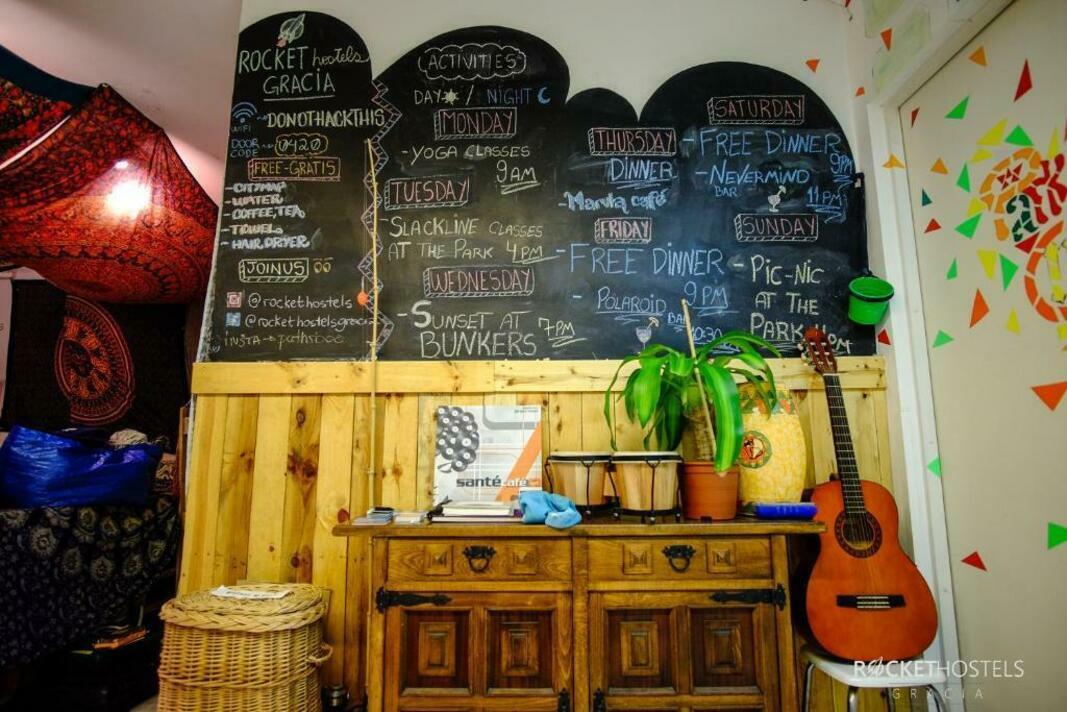 ROCKET hostels
GRACIA
WIFI DONOTHACKTHIS
DOOR CODE 0420
FREE-GRATIS
- CITYMAP
- WATER
- COFFEE, TEA
- TOWEL
- HAIR DRYER
JOIN US
@rockethostels
@rockethostelsgracia
INSTA →
ACTIVITIES
DAY / NIGHT
MONDAY
- YOGA CLASSES
9AM
TUESDAY
SLACKLINE CLASSES
AT THE PARK 4PM
WEDNESDAY
- SUNSET AT 7PM
BUNKERS
THURSDAY
DINNER
- Manla café
FRIDAY
- FREE DINNER
9PM
- POLAROID BAR
10:30
SATURDAY
- FREE DINNER
9PM
- NEVERMIND
BAR 11PM
SUNDAY
- PIC-NIC
AT THE
PARK 4PM
santé café
ROCKETHOSTELS
GRACIA